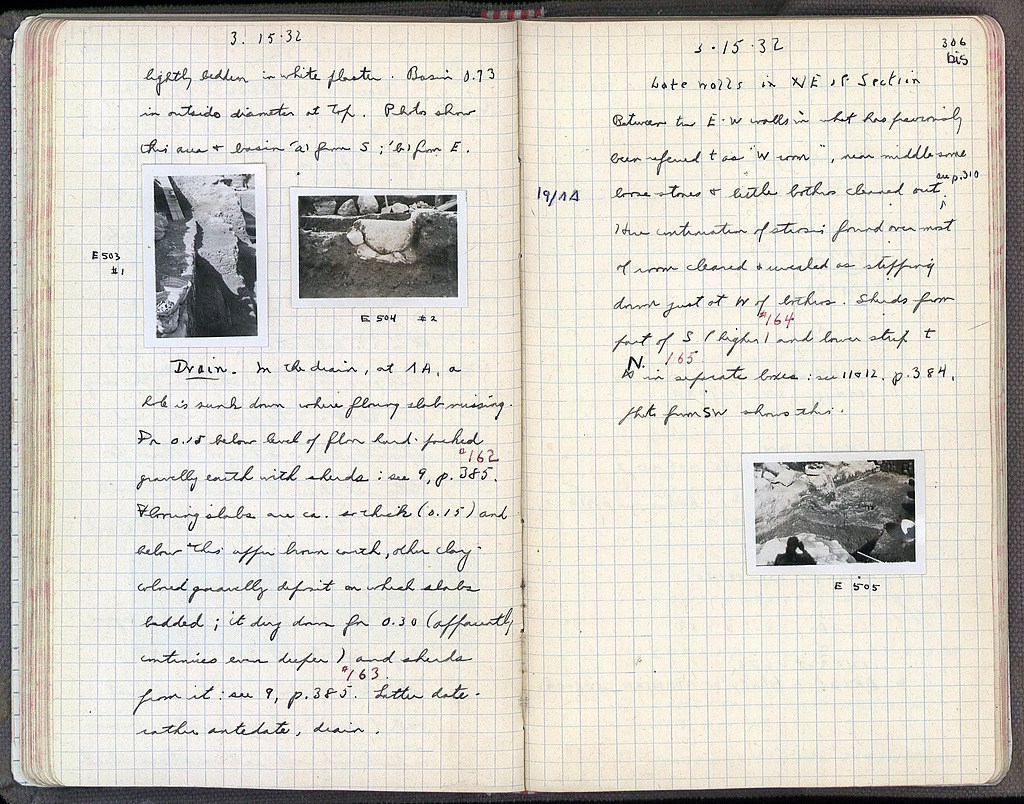 3. 15.32
lightly bedded in white plaster. Basin 0.73
in outside diameter at top. Photos show
this area + basin 'a) from S ; 'b) from E.
E 503
#1
E 504 #2
Drain. In the drain, at 1A, a
hole is sunk down where flooring slab missing.
For 0.15 below level of floor hard-packed
#162
gravelly earth with sherds : see 9, p. 385.
Flooring slabs are ca. so thick (0.15) and
below this upper brown earth, other clay-
colored gravelly deposit on which slabs
bedded ; it dug down for 0.30 (apparently
continues even deeper) and sherds
#163
from it : see 9, p. 385. Latter date -
rather antedate, drain.
3.15.32
306
bis
Late walls in NE of Section
Between two E-W walls in what has previously
been referred t as "W room", near middle some
see p. 310
19/1A
loose stones + little bothros cleared out.
Here continuation of strosis found over most
of room cleared + revealed as stepping
down just at W of bothros. Sherds from
#164
part of S (higher) and lower step t
N. 165
in separate boxes : see 11 & 12, p. 384.
Photo from SW shows this.
E 505